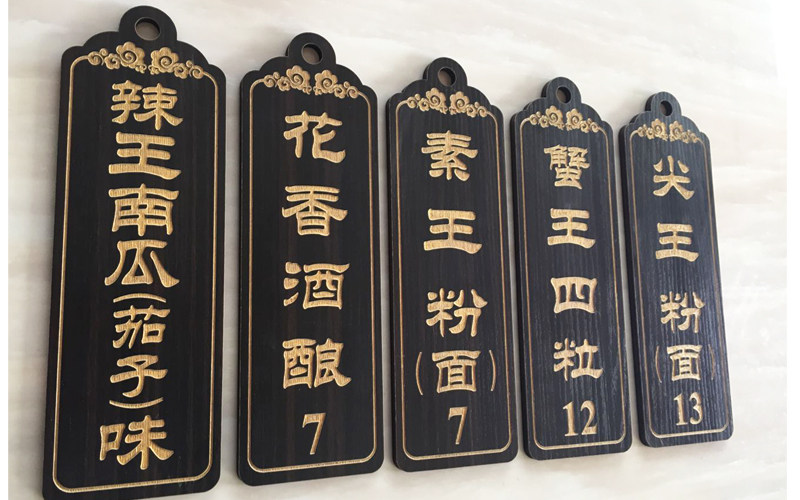 辣王南瓜(茄子)味
花香酒酿
7
素王粉(面)
7
蟹王四粒
12
尖王粉(面)
13